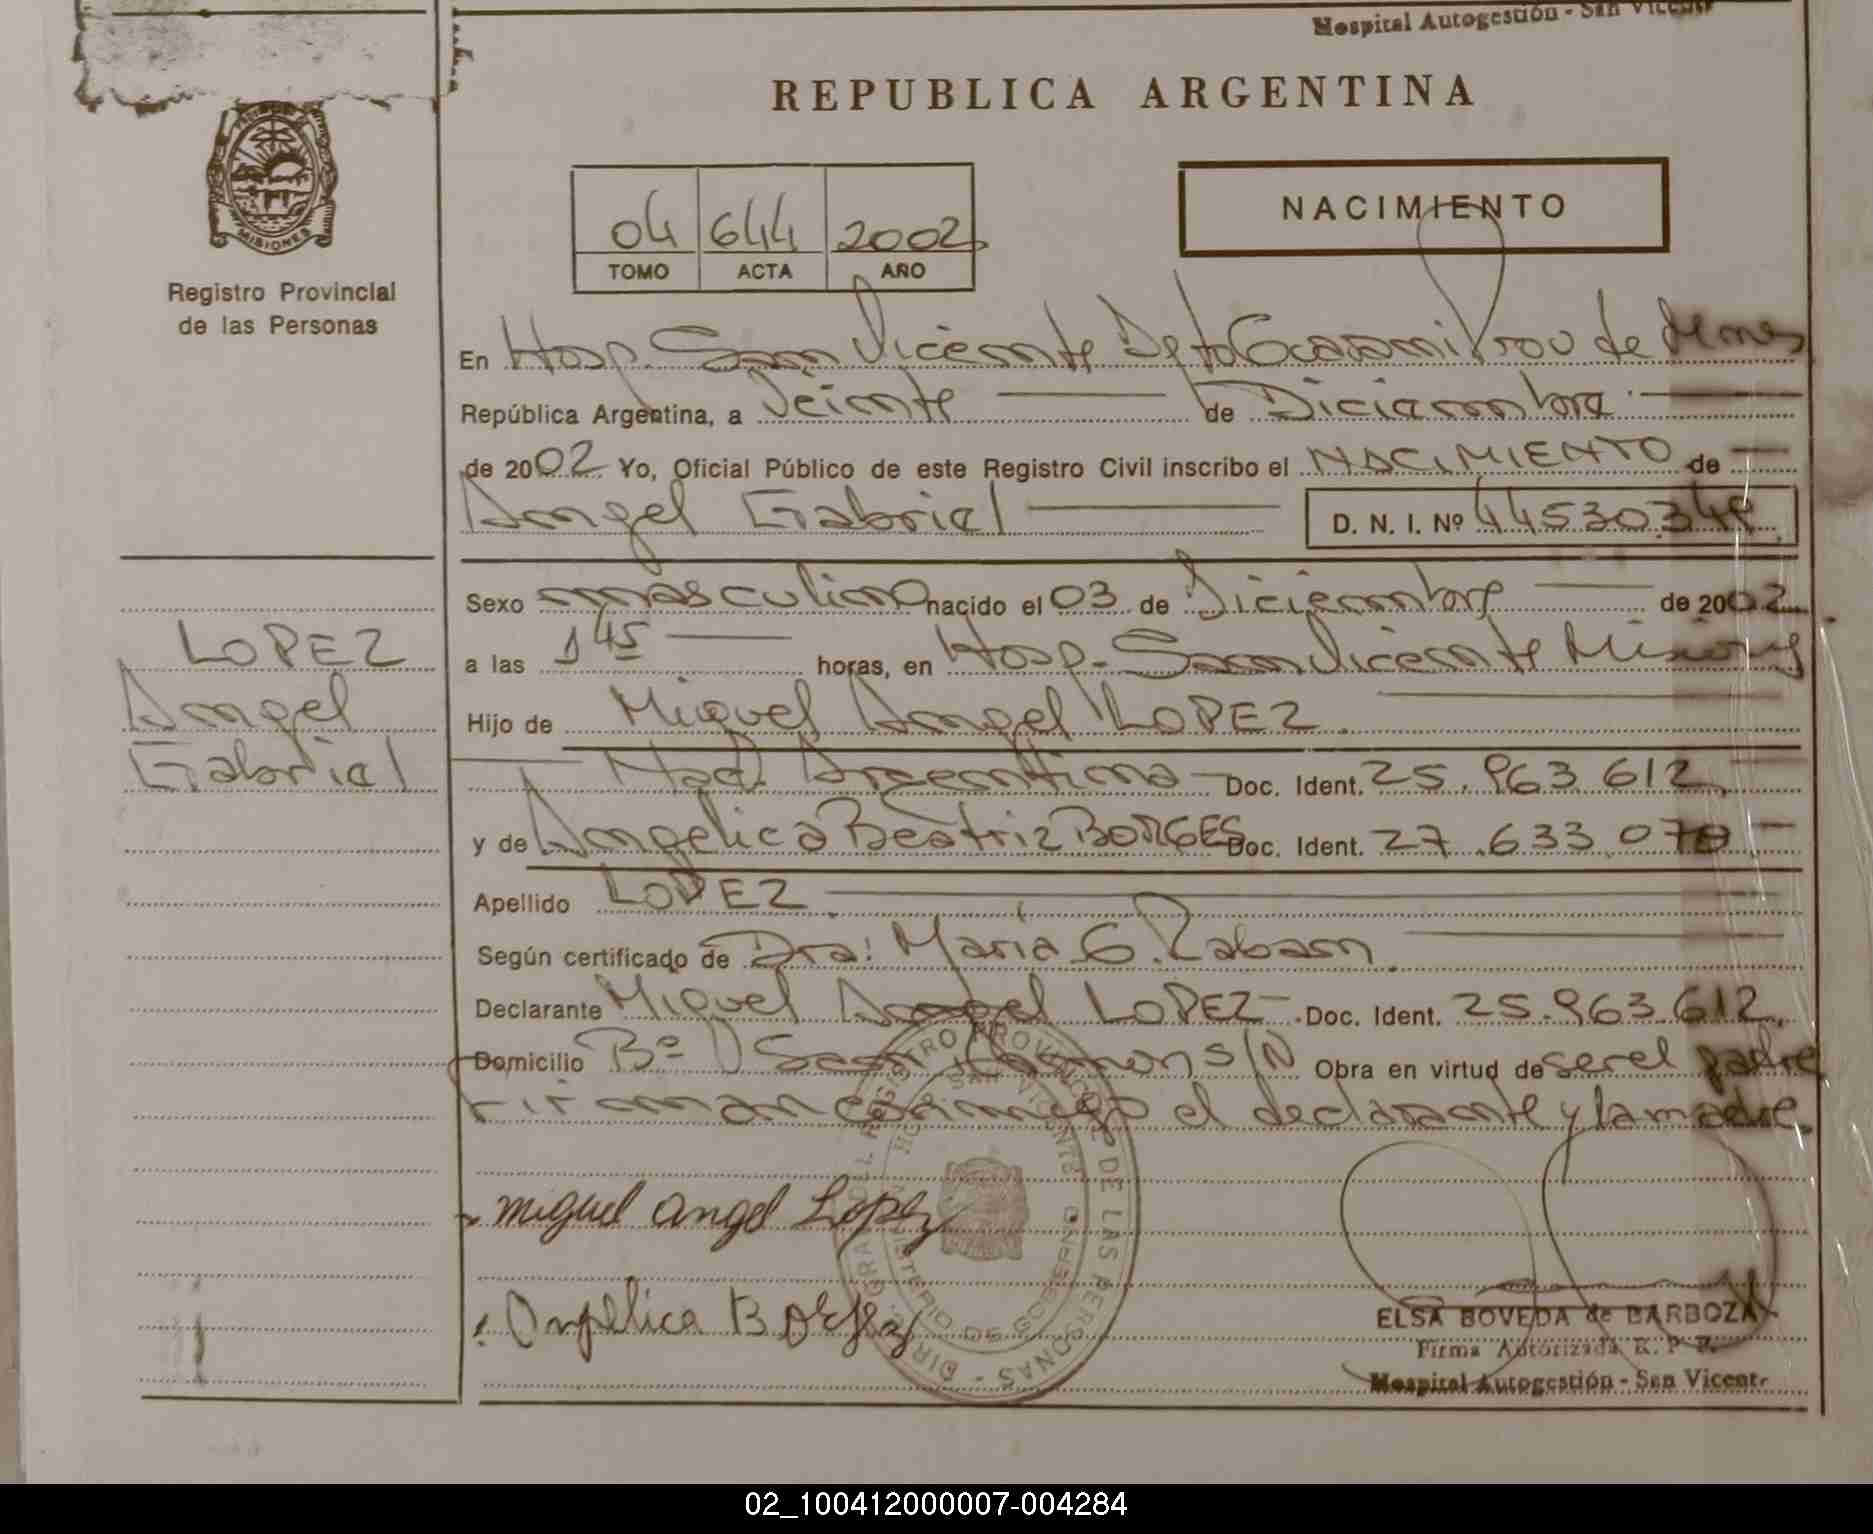 Hospital Autogestión - San Vicente
REPUBLICA ARGENTINA
MISIONES
Registro Provincial
de las Personas
04 644 2002
TOMO ACTA AÑO
NACIMIENTO
En Hosp. San Vicente Dpto Guaraní Prov de Mnes
República Argentina, a Veinte de Diciembre
de 2002 Yo, Oficial Público de este Registro Civil inscribo el NACIMIENTO de
Angel Gabriel D. N. I. Nº 44530348
Sexo masculino nacido el 03 de Diciembre de 2002
a las 1 45 horas, en Hosp. San Vicente Misiones
Hijo de Miguel Angel LOPEZ
Nac. Argentina Doc. Ident. 25.963.612
y de Angelica Beatriz BORGES Doc. Ident. 27.633.070
Apellido LOPEZ
Según certificado de Dra: Maria G. Zaban
Declarante Miguel Angel LOPEZ Doc. Ident. 25.963.612
Domicilio Bº San Ramon S/N Obra en virtud de ser el padre
Firman conmigo el declarante y la madre
LOPEZ
Angel
Gabriel
DIR. GRAL. DEL REGISTRO PROVINCIAL DE LAS PERSONAS
SAN VICENTE
MINISTERIO DE GOBIERNO
Miguel Angel Lopez
Angélica Borges
ELSA BOVEDA de BARBOZA
Firma Autorizada R. P. P.
Hospital Autogestión - San Vicente
02_100412000007-004284